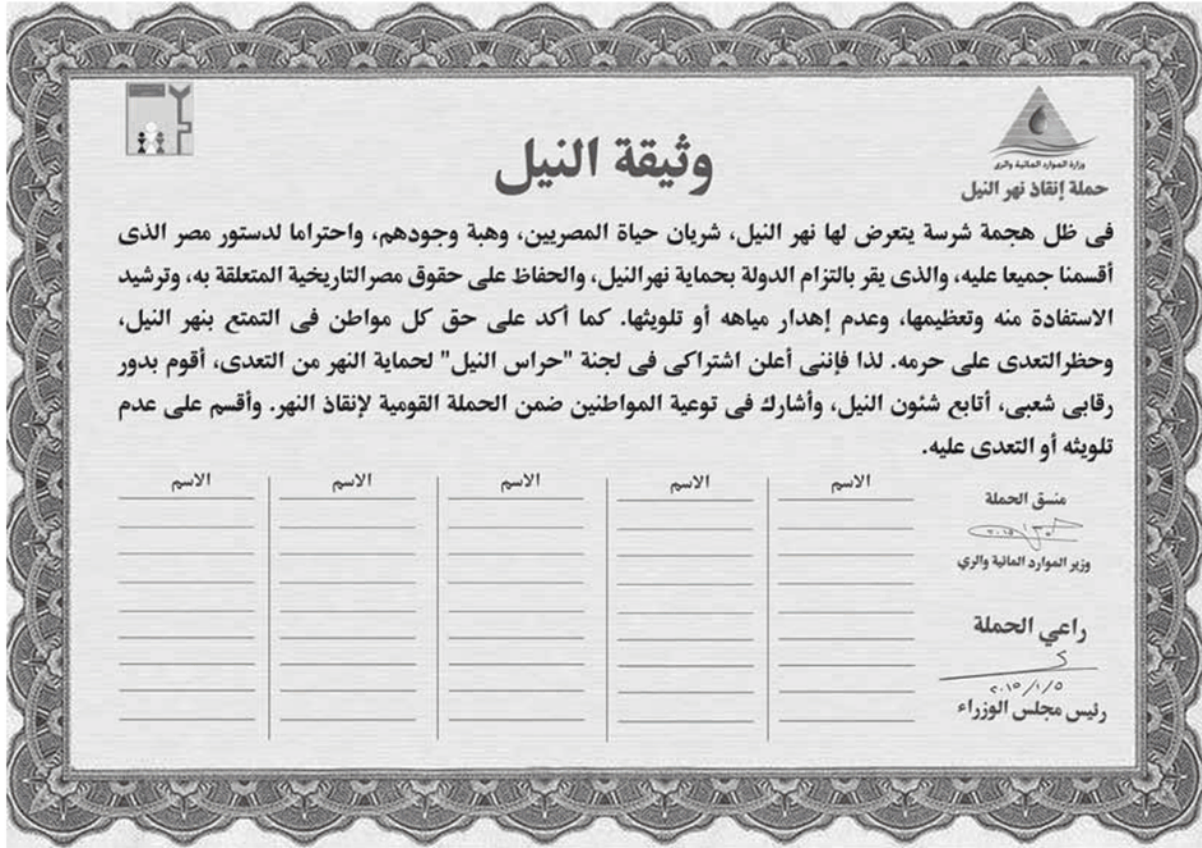 وزارة الموارد المائية والرى
حملة إنقاذ نهر النيل
وثيقة النيل
فى ظل هجمة شرسة يتعرض لها نهر النيل، شريان حياة المصريين، وهبة وجودهم، واحتراما لدستور مصر الذى
أقسمنا جميعا عليه، والذى يقر بالتزام الدولة بحماية نهرالنيل، والحفاظ على حقوق مصرالتاريخية المتعلقة به، وترشيد
الاستفادة منه وتعظيمها، وعدم إهدار مياهه أو تلويثها. كما أكد على حق كل مواطن فى التمتع بنهر النيل،
وحظرالتعدى على حرمه. لذا فإننى أعلن اشتراكى فى لجنة "حراس النيل" لحماية النهر من التعدى، أقوم بدور
رقابى شعبى، أتابع شئون النيل، وأشارك فى توعية المواطنين ضمن الحملة القومية لإنقاذ النهر. وأقسم على عدم
تلويثه أو التعدى عليه.
الاسم الاسم الاسم الاسم الاسم
منسق الحملة
وزير الموارد المائية والري
راعي الحملة
٢٠١٥/١/٥
رئيس مجلس الوزراء